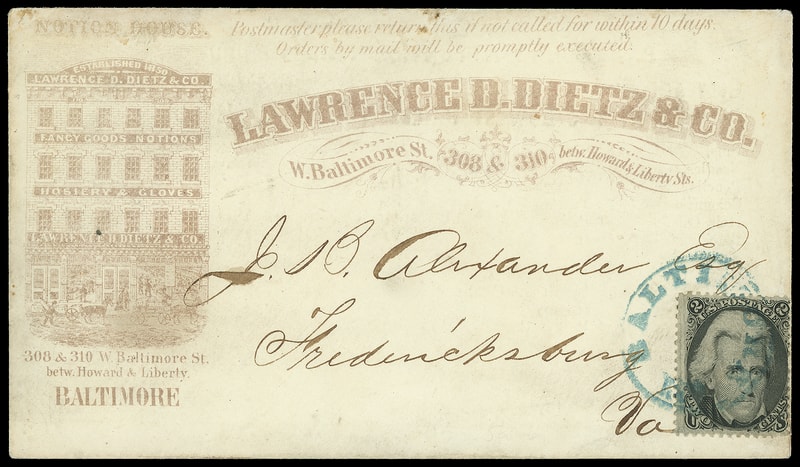 NOTION HOUSE.
Postmaster please return this if not called for within 10 days.
Orders by mail will be promptly executed.
ESTABLISHED 1850
LAWRENCE D. DIETZ & CO.
FANCY GOODS NOTIONS
HOSIERY & GLOVES
LAWRENCE D. DIETZ & CO.
308 & 310 W. Baltimore St.
betw. Howard & Liberty.
BALTIMORE
LAWRENCE D. DIETZ & CO.
W. Baltimore St. 308 & 310 betw. Howard & Liberty Sts.
J. B. Alexander Esq
Fredericksburg
Va
BALTI
2 U.S. POSTAGE 2